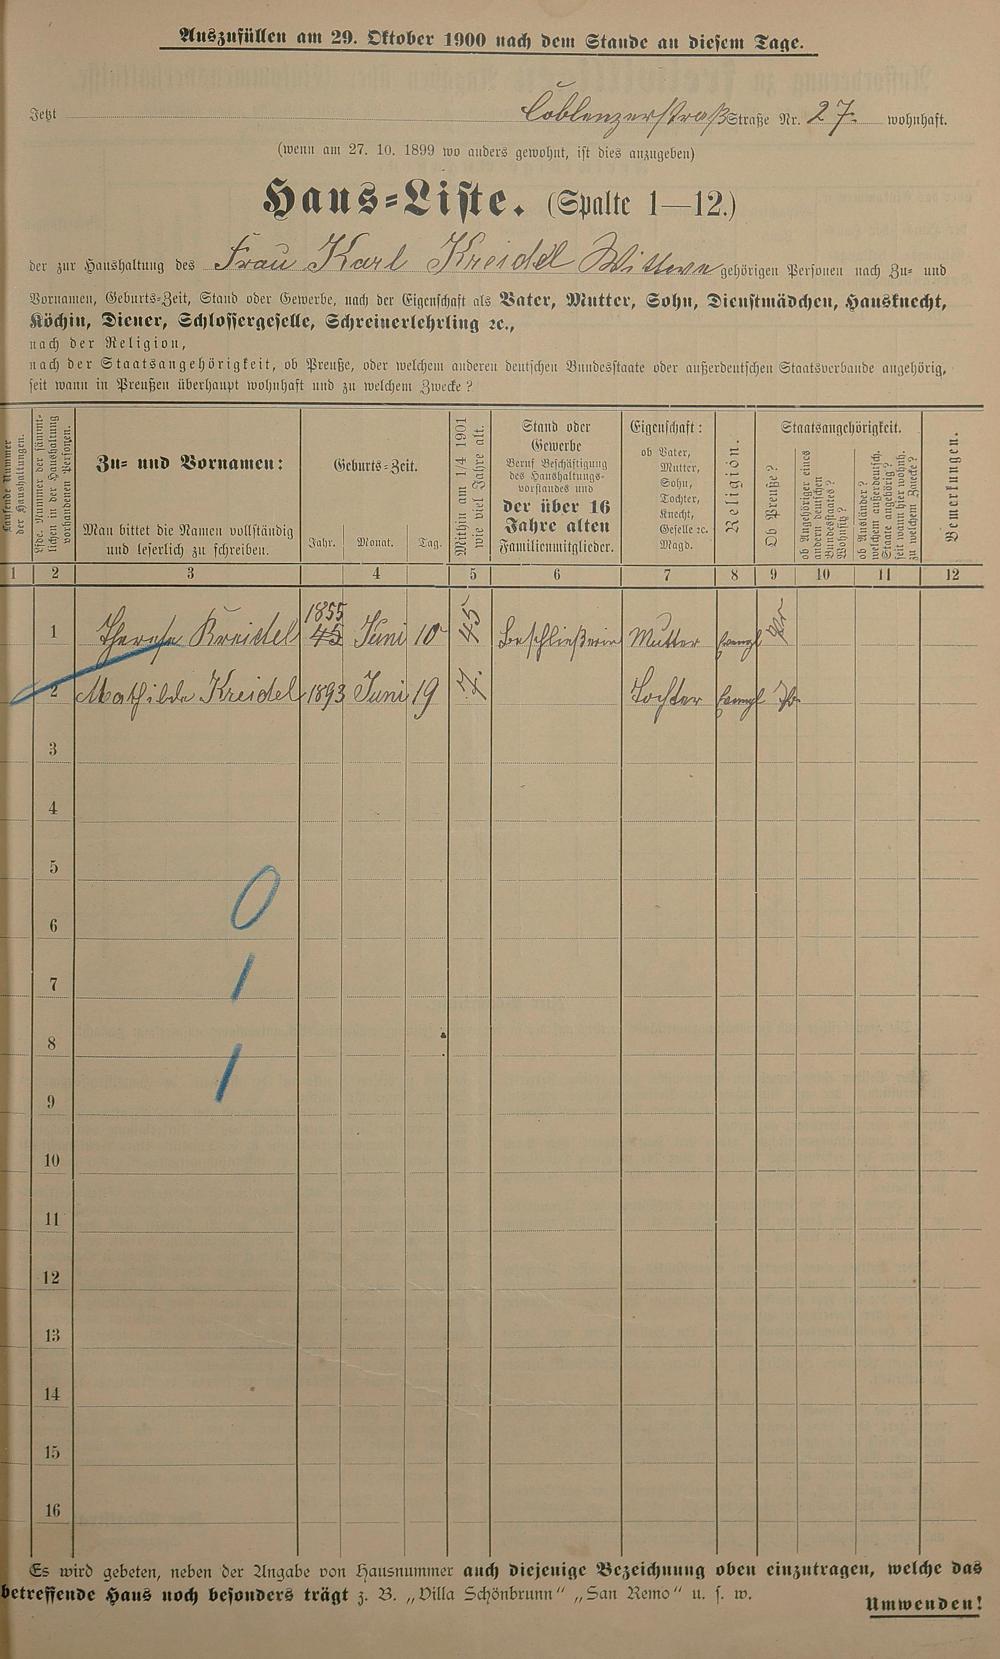 Auszufüllen am 29. Oktober 1900 nach dem Stande an diesem Tage.
Jetzt Coblenzerstraß Straße Nr. 27. wohnhaft.
(wenn am 27. 10. 1899 wo anders gewohnt, ist dies anzugeben)
Haus-Liste. (Spalte 1—12.)
der zur Haushaltung des Frau Karl Kreidel Wittwe gehörigen Personen nach Zu- und
Vornamen, Geburts-Zeit, Stand oder Gewerbe, nach der Eigenschaft als Vater, Mutter, Sohn, Dienstmädchen, Hausknecht,
Köchin, Diener, Schlossergeselle, Schreinerlehrling ꝛc.,
nach der Religion,
nach der Staatsangehörigkeit, ob Preuße, oder welchem anderen deutschen Bundesstaate oder außerdeutschen Staatsverbande angehörig,
seit wann in Preußen überhaupt wohnhaft und zu welchem Zwecke?
Laufende Nummer der Haushaltungen.
Lfde. Nummer der sämmtlichen in der Haushaltung vorhandenen Personen.
Zu- und Vornamen:
Man bittet die Namen vollständig
und leserlich zu schreiben.
Geburts-Zeit.
Jahr. Monat. Tag.
Mithin am 1/4 1901
wie viel Jahre alt.
Stand oder
Gewerbe
Beruf Beschäftigung
des Haushaltungs-
vorstandes und
der über 16
Jahre alten
Familienmitglieder.
Eigenschaft:
ob Vater,
Mutter,
Sohn,
Tochter,
Knecht,
Geselle ꝛc.
Magd.
Religion.
Staatsangehörigkeit.
Ob Preuße?
ob Angehöriger eines
andern deutschen
Bundesstaates?
Wohnsitz?
ob Ausländer?
welchem außerdeutsch.
Staate angehörig?
seit wann hier wohnh.
zu welchem Zwecke?
Bemerkungen.
1 2 3 4 5 6 7 8 9 10 11 12
1 Therese Kreidel 1855 45 Juni 10 45 Beschließerin Mutter Evangl Pr
2 Mathilde Kreidel 1893 Juni 19 7. Tochter Evangl Pr
3
4
5
0
6
7 1
8
1
9
10
11
12
13
14
15
16
Es wird gebeten, neben der Angabe von Hausnummer auch diejenige Bezeichnung oben einzutragen, welche das
betreffende Haus noch besonders trägt z. B. „Villa Schönbrunn“ „San Remo“ u. s. w.
Umwenden!